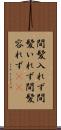 間髪入れず間
髪いれず間髪
容れず